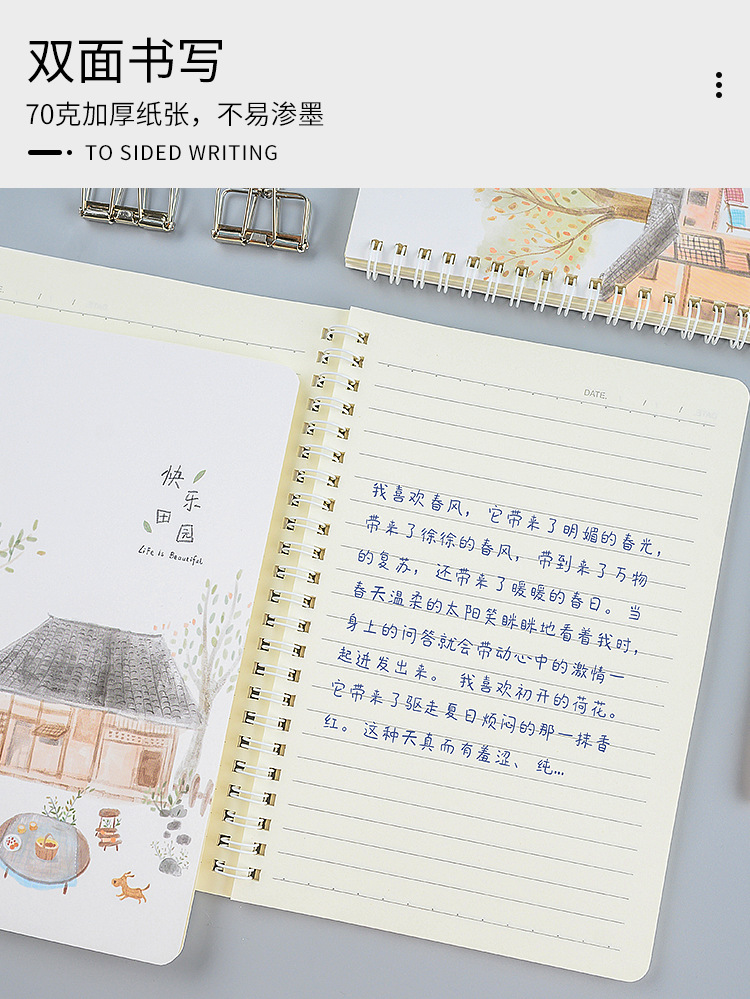 双面书写
70克加厚纸张，不易渗墨
TO SIDED WRITING
DATE.
快乐
田园
Life is Beautiful
我喜欢春风，它带来了明媚的春光，
带来了徐徐的春风，带到来了万物
的复苏，还带来了暖暖的春日。当
春天温柔的太阳笑眯眯地看着我时，
身上的问答就会带动心中的激情一
起迸发出来。我喜欢初开的荷花。
它带来了驱走夏日烦闷的那一抹香
红。这种天真而有羞涩、纯...